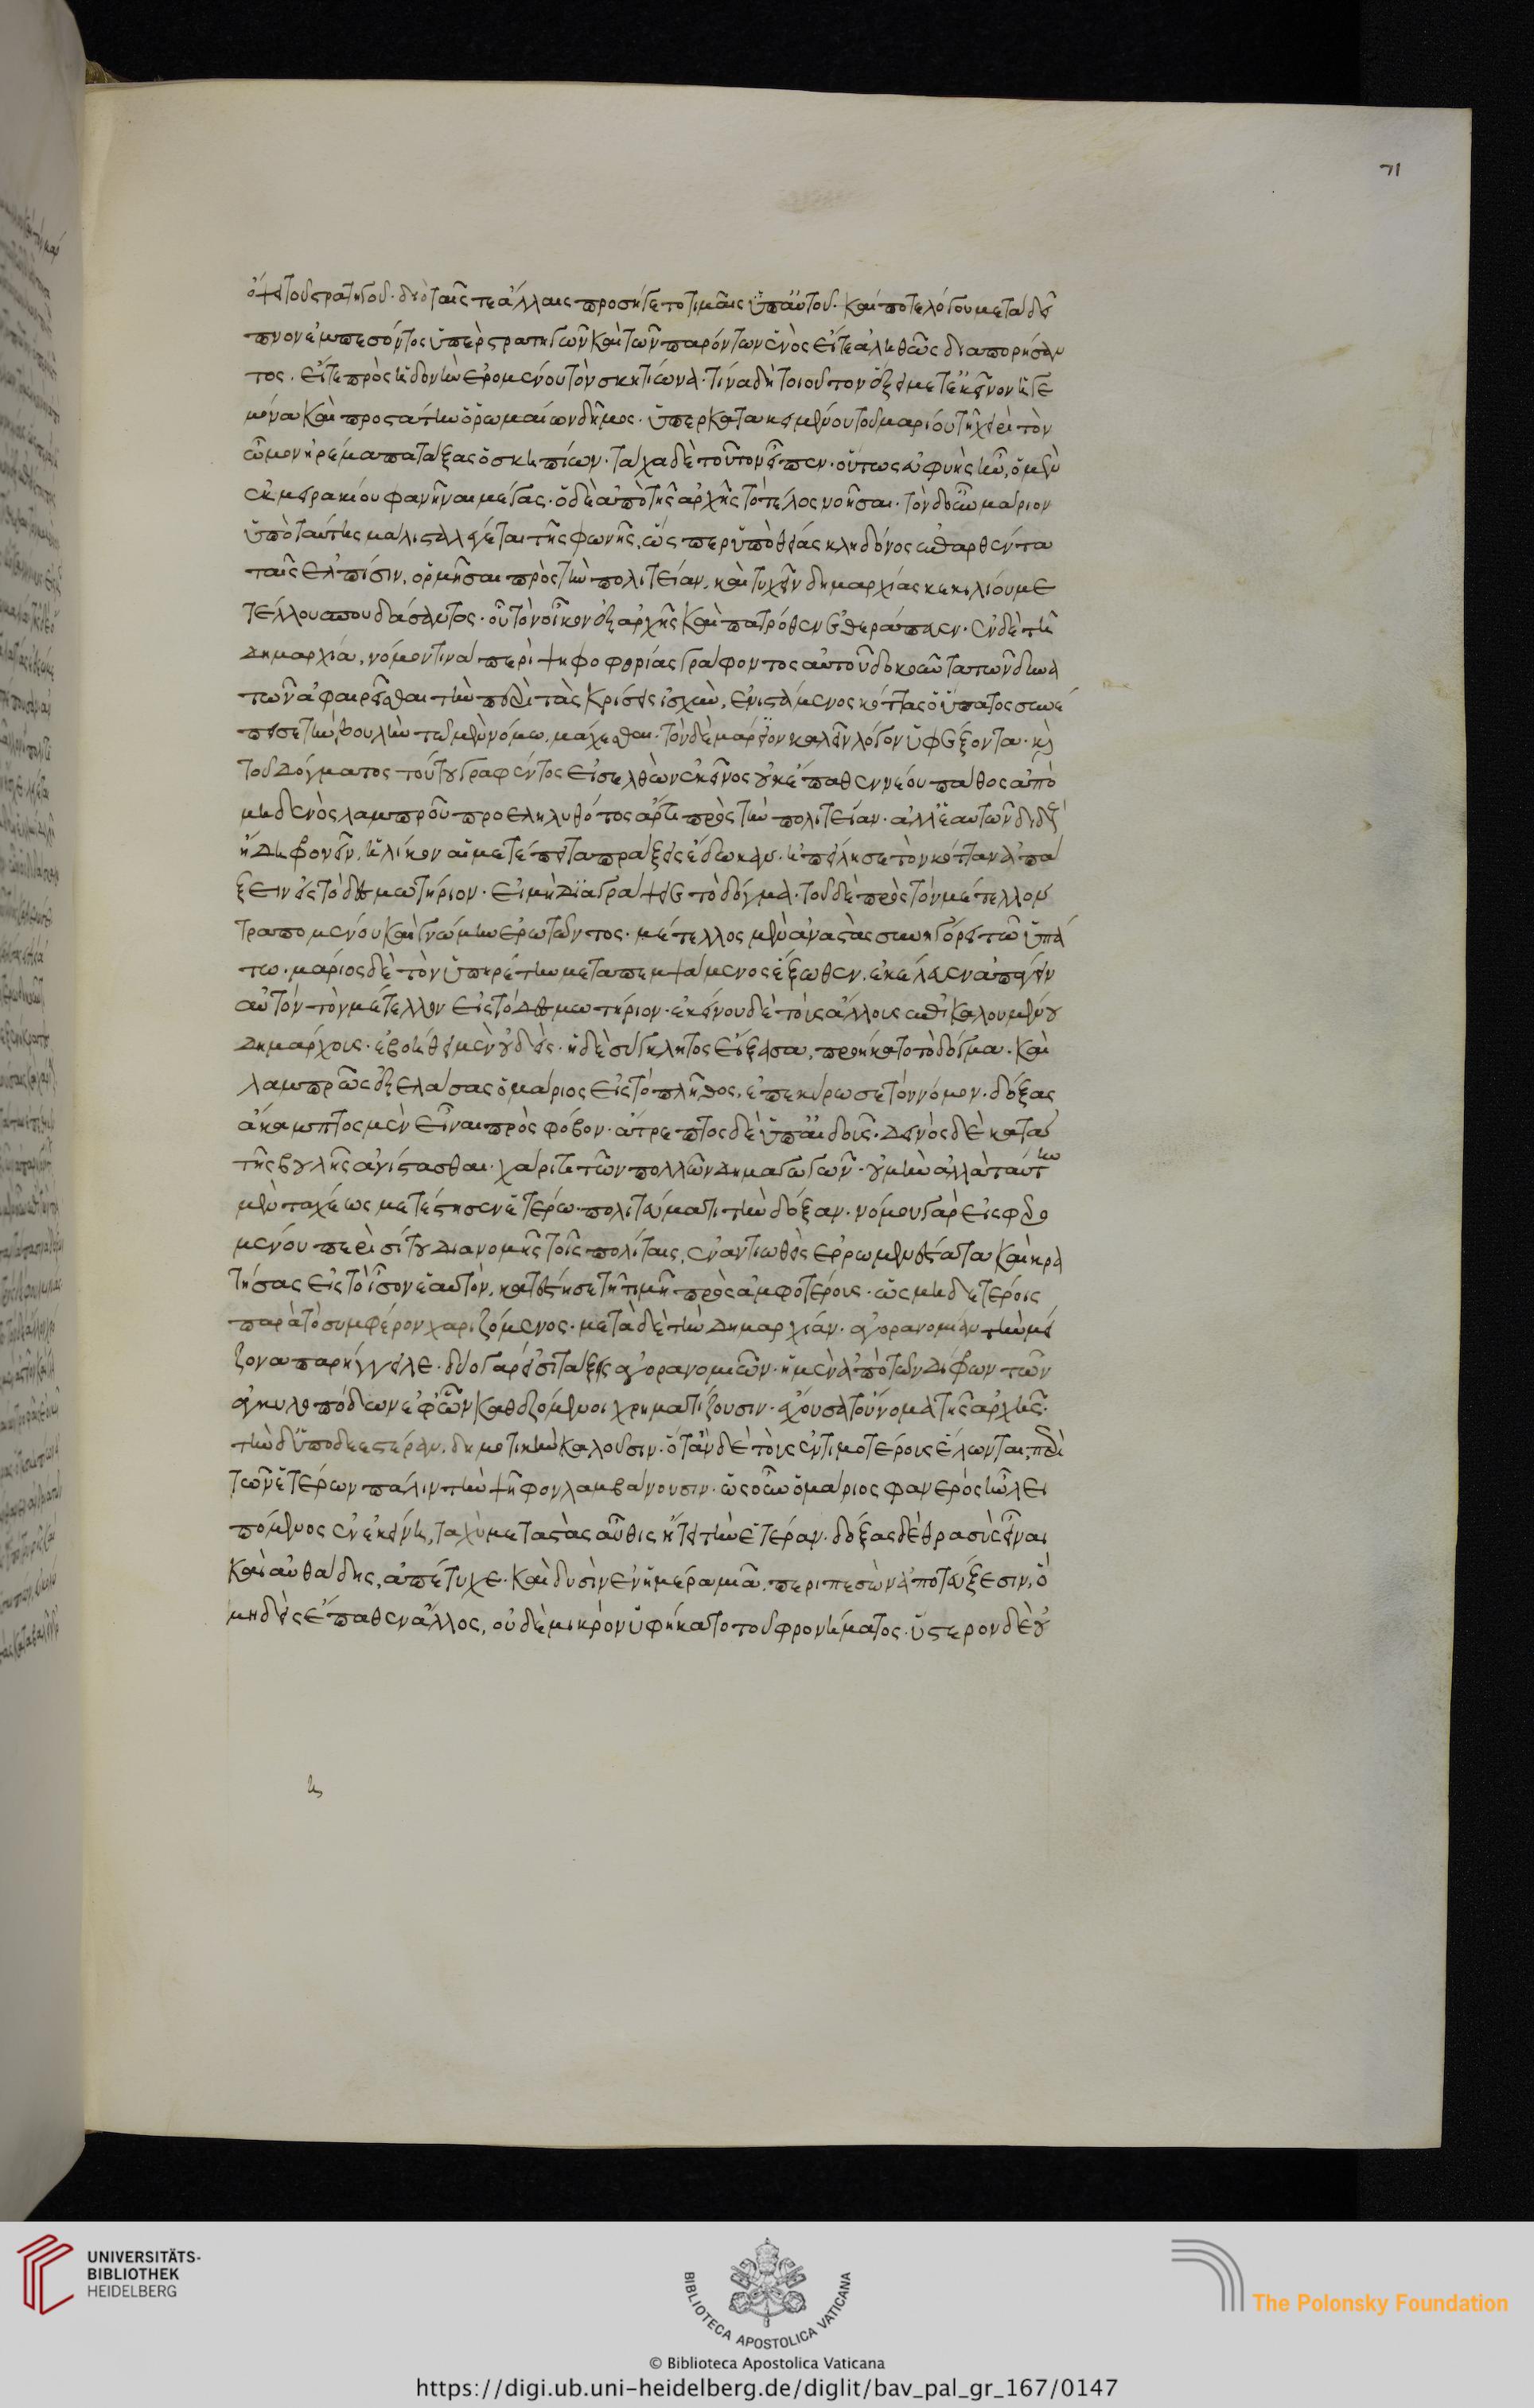 71
ὄψει τοῦ στρατηγοῦ· διὸ ταῖς τε ἄλλαις προσήγετο τιμαῖς ὑπ' αὐτοῦ· καί ποτε λόγου μετὰ δεῖ
πνον ἐμπεσόντος ὑπὲρ στρατηγῶν καὶ τῶν παρόντων ἑνὸς εἴτε ἀληθῶς διαπορήσαν
τος· εἴτε πρὸς ἡδονὴν ἐρομένου τὸν σκηπίωνα· τίνα δὴ τοιοῦτον ἕξει μετ' ἐκεῖνον ἡγε
μόνα καὶ προστάτην ὁ ῥωμαίων δῆμος· ὑπερκατακειμένου τοῦ μαρίου τῇ χειρὶ τὸν
ὦμον ἠρέμα πατάξας ὁ σκηπίων· τάχα δὲ τοῦτον εἶπεν· οὕτως εὐφυὴς ἦν, ὁ μὲν
ἐκ μειρακίου φανῆναι μέγας· ὁ δὲ ἀπὸ τῆς ἀρχῆς τὸ τέλος νοῆσαι· τὸν δ' οὖν μάριον
ὑπὸ ταύτης μάλιστα λέγεται τῆς φωνῆς, ὥσπερ ὑπὸ θείας κληδόνος ἐπαρθέντα
ταῖς ἐλπίσιν, ὁρμῆσαι πρὸς τὴν πολιτείαν, καὶ τυχεῖν δημαρχίας κεκιλίου με
τέλλου σπουδάσαντος· οὗ τὸν οἶκον ἐξ ἀρχῆς καὶ πατρόθεν ἐθεράπευεν· ἐν δὲ τῇ
δημαρχίᾳ, νόμον τινὰ περὶ ψηφοφορίας γράφοντος αὐτοῦ δοκοῦντα τῶν δυνα
τῶν ἀφαιρεῖσθαι τὴν περὶ τὰς κρίσεις ἰσχὺν, ἐνιστάμενος κόττας ὁ ὕπατος συνέ
πεισε τὴν βουλὴν τῷ μὲν νόμῳ, μάχεσθαι· τὸν δὲ μάριον καλεῖν λόγον ὑφέξοντα· καὶ
τοῦ δόγματος τούτου γραφέντος εἰσελθὼν ἐκεῖνος οὐκ ἔπαθεν νέου πάθος ἀπὸ
μηδενὸς λαμπροῦ προεληλυθότος ἄρτι πρὸς τὴν πολιτείαν· ἀλλ' ἑαυτῶν διδοὺς
ἤδη φρονεῖν, ἡλίκον αἱ μετέπειτα πράξεις ἔδωκαν· ἠπείλησε τὸν κότταν ἀπά
ξειν εἰς τὸ δεσμωτήριον· εἰ μὴ διαγράψειε τὸ δόγμα· τοῦ δὲ πρὸς τὸν μέτελλον
τραπομένου καὶ γνώμην ἐρωτῶντος· μέτελλος μὲν ἀναστὰς συνηγόρει τῷ ὑπά
τῳ· μάριος δὲ τὸν ὑπηρέτην μεταπεμψάμενος ἔξωθεν, ἐκέλευεν ἀπάγειν
αὐτὸν τὸν μέτελλον εἰς τὸ δεσμωτήριον· ἐκείνου δὲ τοὺς ἄλλους ἐπικαλουμένου
δημάρχοις· ἐβοήθει μὲν οὐδεὶς· ἡ δὲ σύγκλητος εἴξασα, προήκατο τὸ δόγμα· καὶ
λαμπρῶς ἐξελάσας ὁ μάριος εἰς τὸ πλῆθος, ἐπεκύρωσε τὸν νόμον· δόξας
ἄκαμπτος μὲν εἶναι πρὸς φόβον· ἄτρεπτος δὲ ὑπ' αἰδοῖς· δεινὸς δὲ κατὰ
τῆς βουλῆς ἀνίστασθαι· χάριτι τῶν πολλῶν δημαγωγῶν· οὐ μὴν ἀλλὰ ταύτην
μὲν ταχέως μετέστησεν ἑτέρῳ πολιτεύματι τὴν δόξαν· νόμου γὰρ εἰσφερο
μένου περὶ σίτου διανομῆς τοῖς πολίταις, ἐναντιωθεὶς ἐρρωμενέστατα καὶ κρα
τήσας εἰς τὸ ἴσον ἑαυτὸν, κατέστησε τῇ τιμῇ πρὸς ἀμφοτέρους· ὡς μηδετέροις
παρὰ τὸ συμφέρον χαριζόμενος· μετὰ δὲ τὴν δημαρχίαν· ἀγορανομίαν τὴν μεί
ζονα παρήγγειλε· δύο γάρ εἰσι τάξεις ἀγορανομιῶν· ἡ μὲν ἀπὸ τῶν δίφρων τῶν
ἀγκυλοπόδων ἐφ' ὧν καθεζόμενοι χρηματίζουσιν· ἔχουσα τοὔνομα τῆς ἀρχῆς·
τὴν δ' ὑποδεεστέραν, δημοτικὴν καλοῦσιν· ὅταν δὲ τοὺς ἐντιμοτέρους ἕλωνται, περὶ
τῶν ἑτέρων πάλιν τὴν ψῆφον λαμβάνουσιν· ὡς οὖν ὁ μάριος φανερὸς ἦν λει
πόμενος ἐν ἐκείνῃ, ταχὺ μεταστὰς αὖθις ᾔτει τὴν ἑτέραν· δόξας δὲ θρασὺς εἶναι
καὶ αὐθάδης, ἀπέτυχε· καὶ δυσὶν ἐν ἡμέρᾳ μιᾷ, περιπεσὼν ἀποτεύξεσιν, ὃ
μηδεὶς ἔπαθεν ἄλλος, οὐδὲ μικρὸν ὑφήκατο τοῦ φρονήματος· ὕστερον δὲ οὐ
UNIVERSITÄTS-
BIBLIOTHEK
HEIDELBERG
BIBLIOTECA APOSTOLICA VATICANA
The Polonsky Foundation
© Biblioteca Apostolica Vaticana
https://digi.ub.uni-heidelberg.de/diglit/bav_pal_gr_167/0147